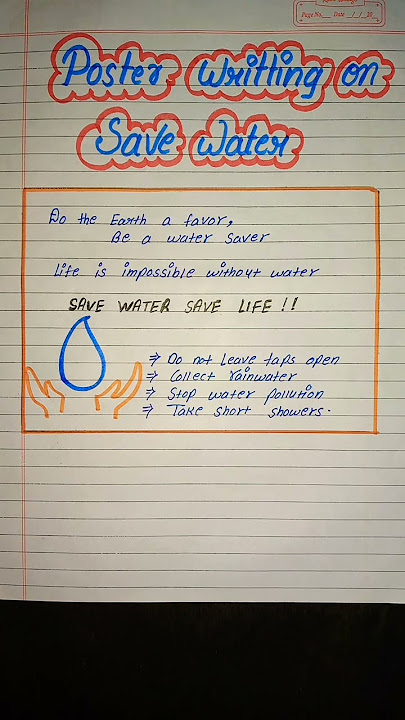 Page No. Date / / 20
Poster Writting on
Save Water
Do the Earth a favor,
Be a water saver
Life is impossible without water
SAVE WATER SAVE LIFE !!
⇒ Do not Leave taps open
⇒ Collect rainwater
⇒ Stop water pollution
⇒ Take short showers.